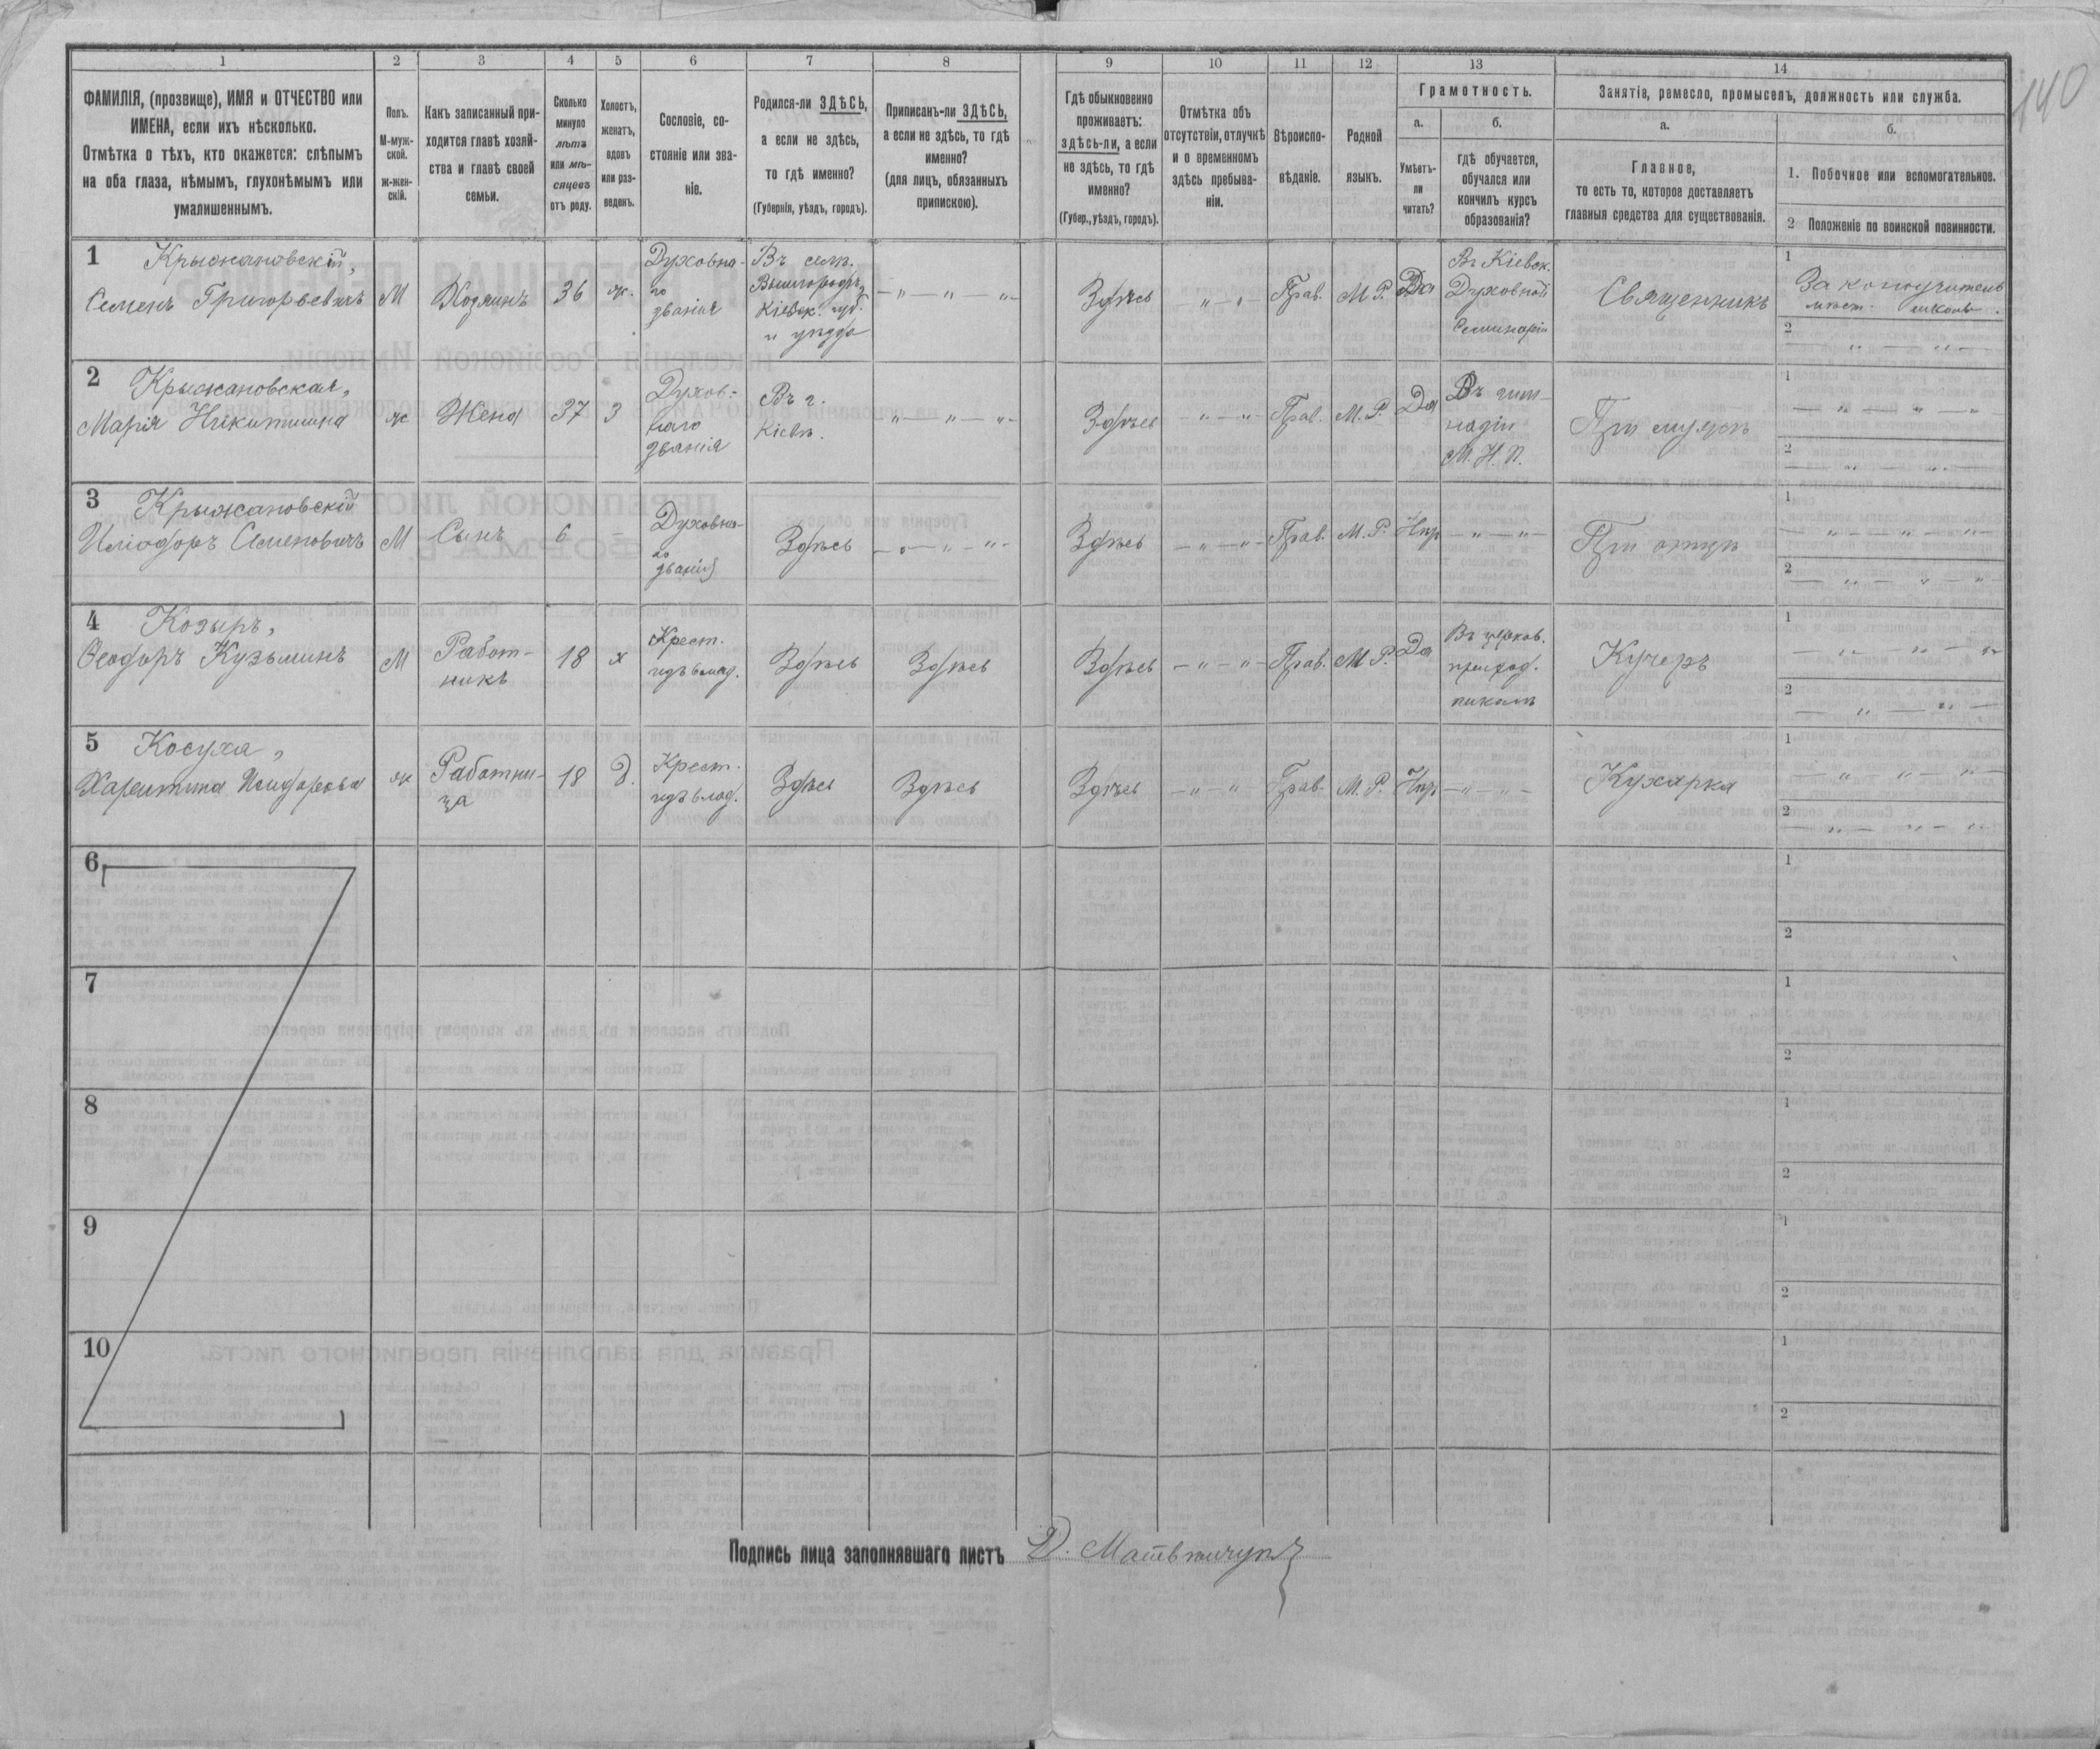 140
1 2 3 4 5 6 7 8 9 10 11 12 13 14
ФАМИЛІЯ, (прозвище), ИМЯ и ОТЧЕСТВО или
ИМЕНА, если ихъ нѣсколько.
Отмѣтка о тѣхъ, кто окажется: слѣпымъ
на оба глаза, нѣмымъ, глухонѣмымъ или
умалишеннымъ.
Полъ.
М-муж-
ской.
Ж-жен-
скій.
Какъ записанный при-
ходится главѣ хозяй-
ства и главѣ своей
семьи.
Сколько
минуло
лѣтъ
или мѣ-
сяцевъ
отъ роду.
Холостъ,
женатъ,
вдовъ
или раз-
веденъ.
Сословіе, со-
стояніе или зва-
ніе.
Родился-ли ЗДѢСЬ,
а если не здѣсь,
то гдѣ именно?
(Губернія, уѣздъ, городъ).
Приписанъ-ли ЗДѢСЬ,
а если не здѣсь, то гдѣ
именно?
(для лицъ, обязанныхъ
припискою).
Гдѣ обыкновенно
проживаетъ:
здѣсь-ли, а если
не здѣсь, то гдѣ
именно?
(Губер., уѣздъ, городъ).
Отмѣтка объ
отсутствіи, отлучкѣ
и о временномъ
здѣсь пребыва-
ніи.
Вѣроиспо-
вѣданіе.
Родной
языкъ.
Грамотность.
а.
Умѣетъ-
ли
читать?
б.
гдѣ обучается,
обучался или
кончилъ курсъ
образованія?
Занятіе, ремесло, промыселъ, должность или служба.
а.
Главное,
то есть то, которое доставляетъ
главныя средства для существованія.
б.
1. Побочное или вспомогательное.
2 Положеніе по воинской повинности.
1 Крыжановскій,
Семенъ Григорьевичъ
М
Хозяинъ
36
ж.
Духовна-
го
званія
Въ селѣ.
Вышгородѣ,
Кіевск. губ.
и уѣзда
Здѣсь
Прав.
М. Р.
Да
Въ Кіевск.
Духовной
Семинаріи
Священникъ
1
Законоучитель
мѣст. школы.
2
2 Крыжановская,
Марія Никитична
ж
Жена
37
З
Духов-
наго
званія
Въ г.
Кіевѣ.
Здѣсь
Прав.
М. Р.
Да
Въ гим-
назіи
М. Н. П.
При мужѣ
1
2
3 Крыжановскій
Иліодоръ Семеновичъ
М
Сынъ
6
Духовна-
го
званія
Здѣсь
Здѣсь
Прав.
М. Р.
Нѣт
При отцѣ
1
2
4 Козыръ,
Ѳеодоръ Кузьминъ
М
Работ-
никъ
18
х
Крест.
Здѣсь
Здѣсь
Здѣсь
Прав.
М. Р.
Да
Въ церков.
приход.
школѣ
Кучеръ
1
2
5 Косуха,
Харитина
ж
Работни-
ца
18
Д.
Крест.
Здѣсь
Здѣсь
Здѣсь
Прав.
М. Р.
Нѣт
Кухарка
1
2
6
1
2
7
1
2
8
1
2
9
1
2
10
1
2
Подпись лица заполнявшаго листъ